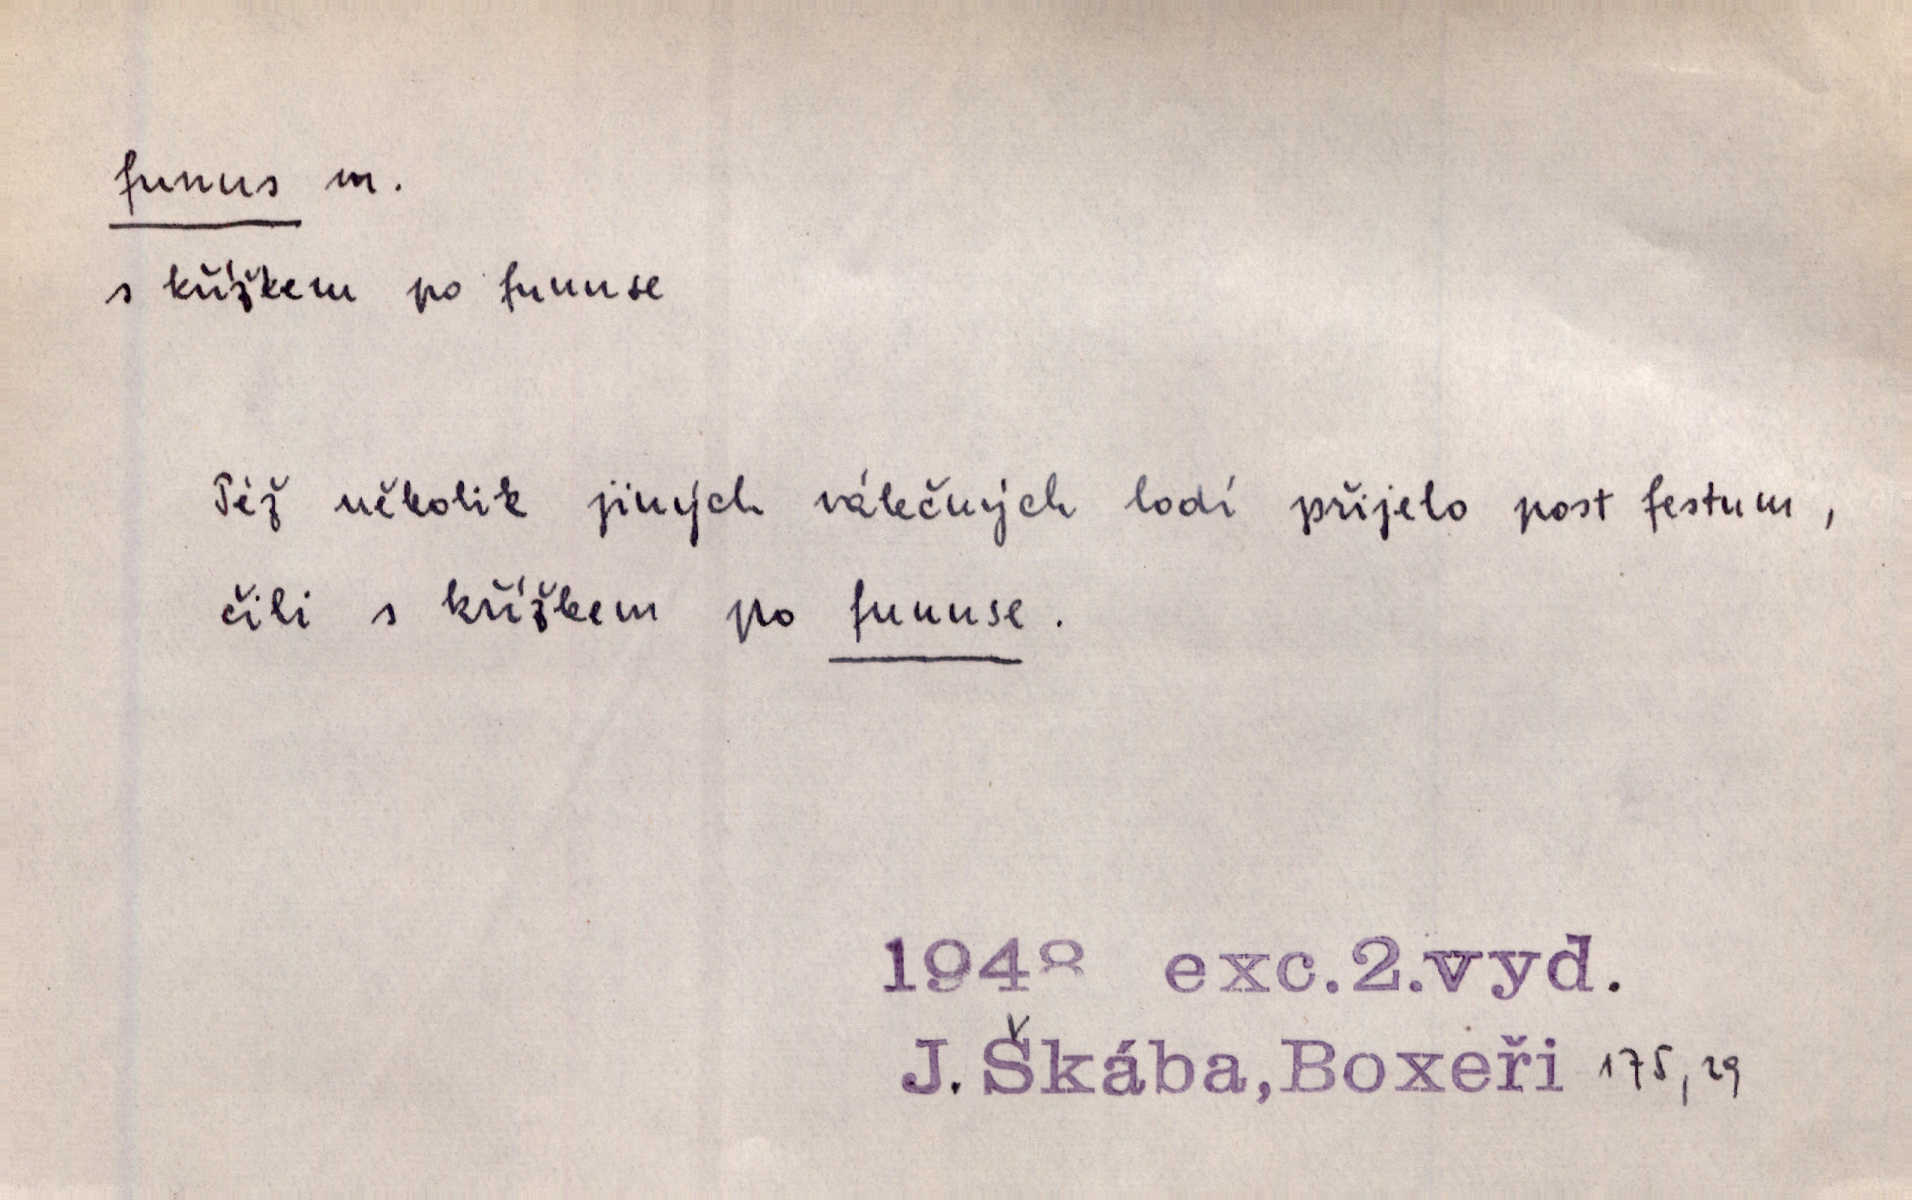 funus m.
s křížkem po funuse
Též několik jiných válečných lodí přijelo post festum,
čili s křížkem po funuse.
1948 exc.2.vyd.
J.Škába,Boxeři 175,29